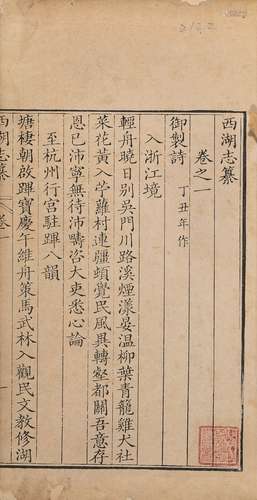 西湖志纂
卷之一
御製詩 丁丑年作
入浙江境
輕舟曉日別吳門川路溪煙漾晏温柳葉青籠雞犬社
菜花黃入學蘿村連疆頓覺民風異轉壑都關吾意存
恩已沛寧無待沛疇咨大吏悉心論
至杭州行宮駐蹕八韻
塘棲朝啟蹕寶慶午維舟策馬武林入觀民文教修湖
西湖志纂
卷一
一